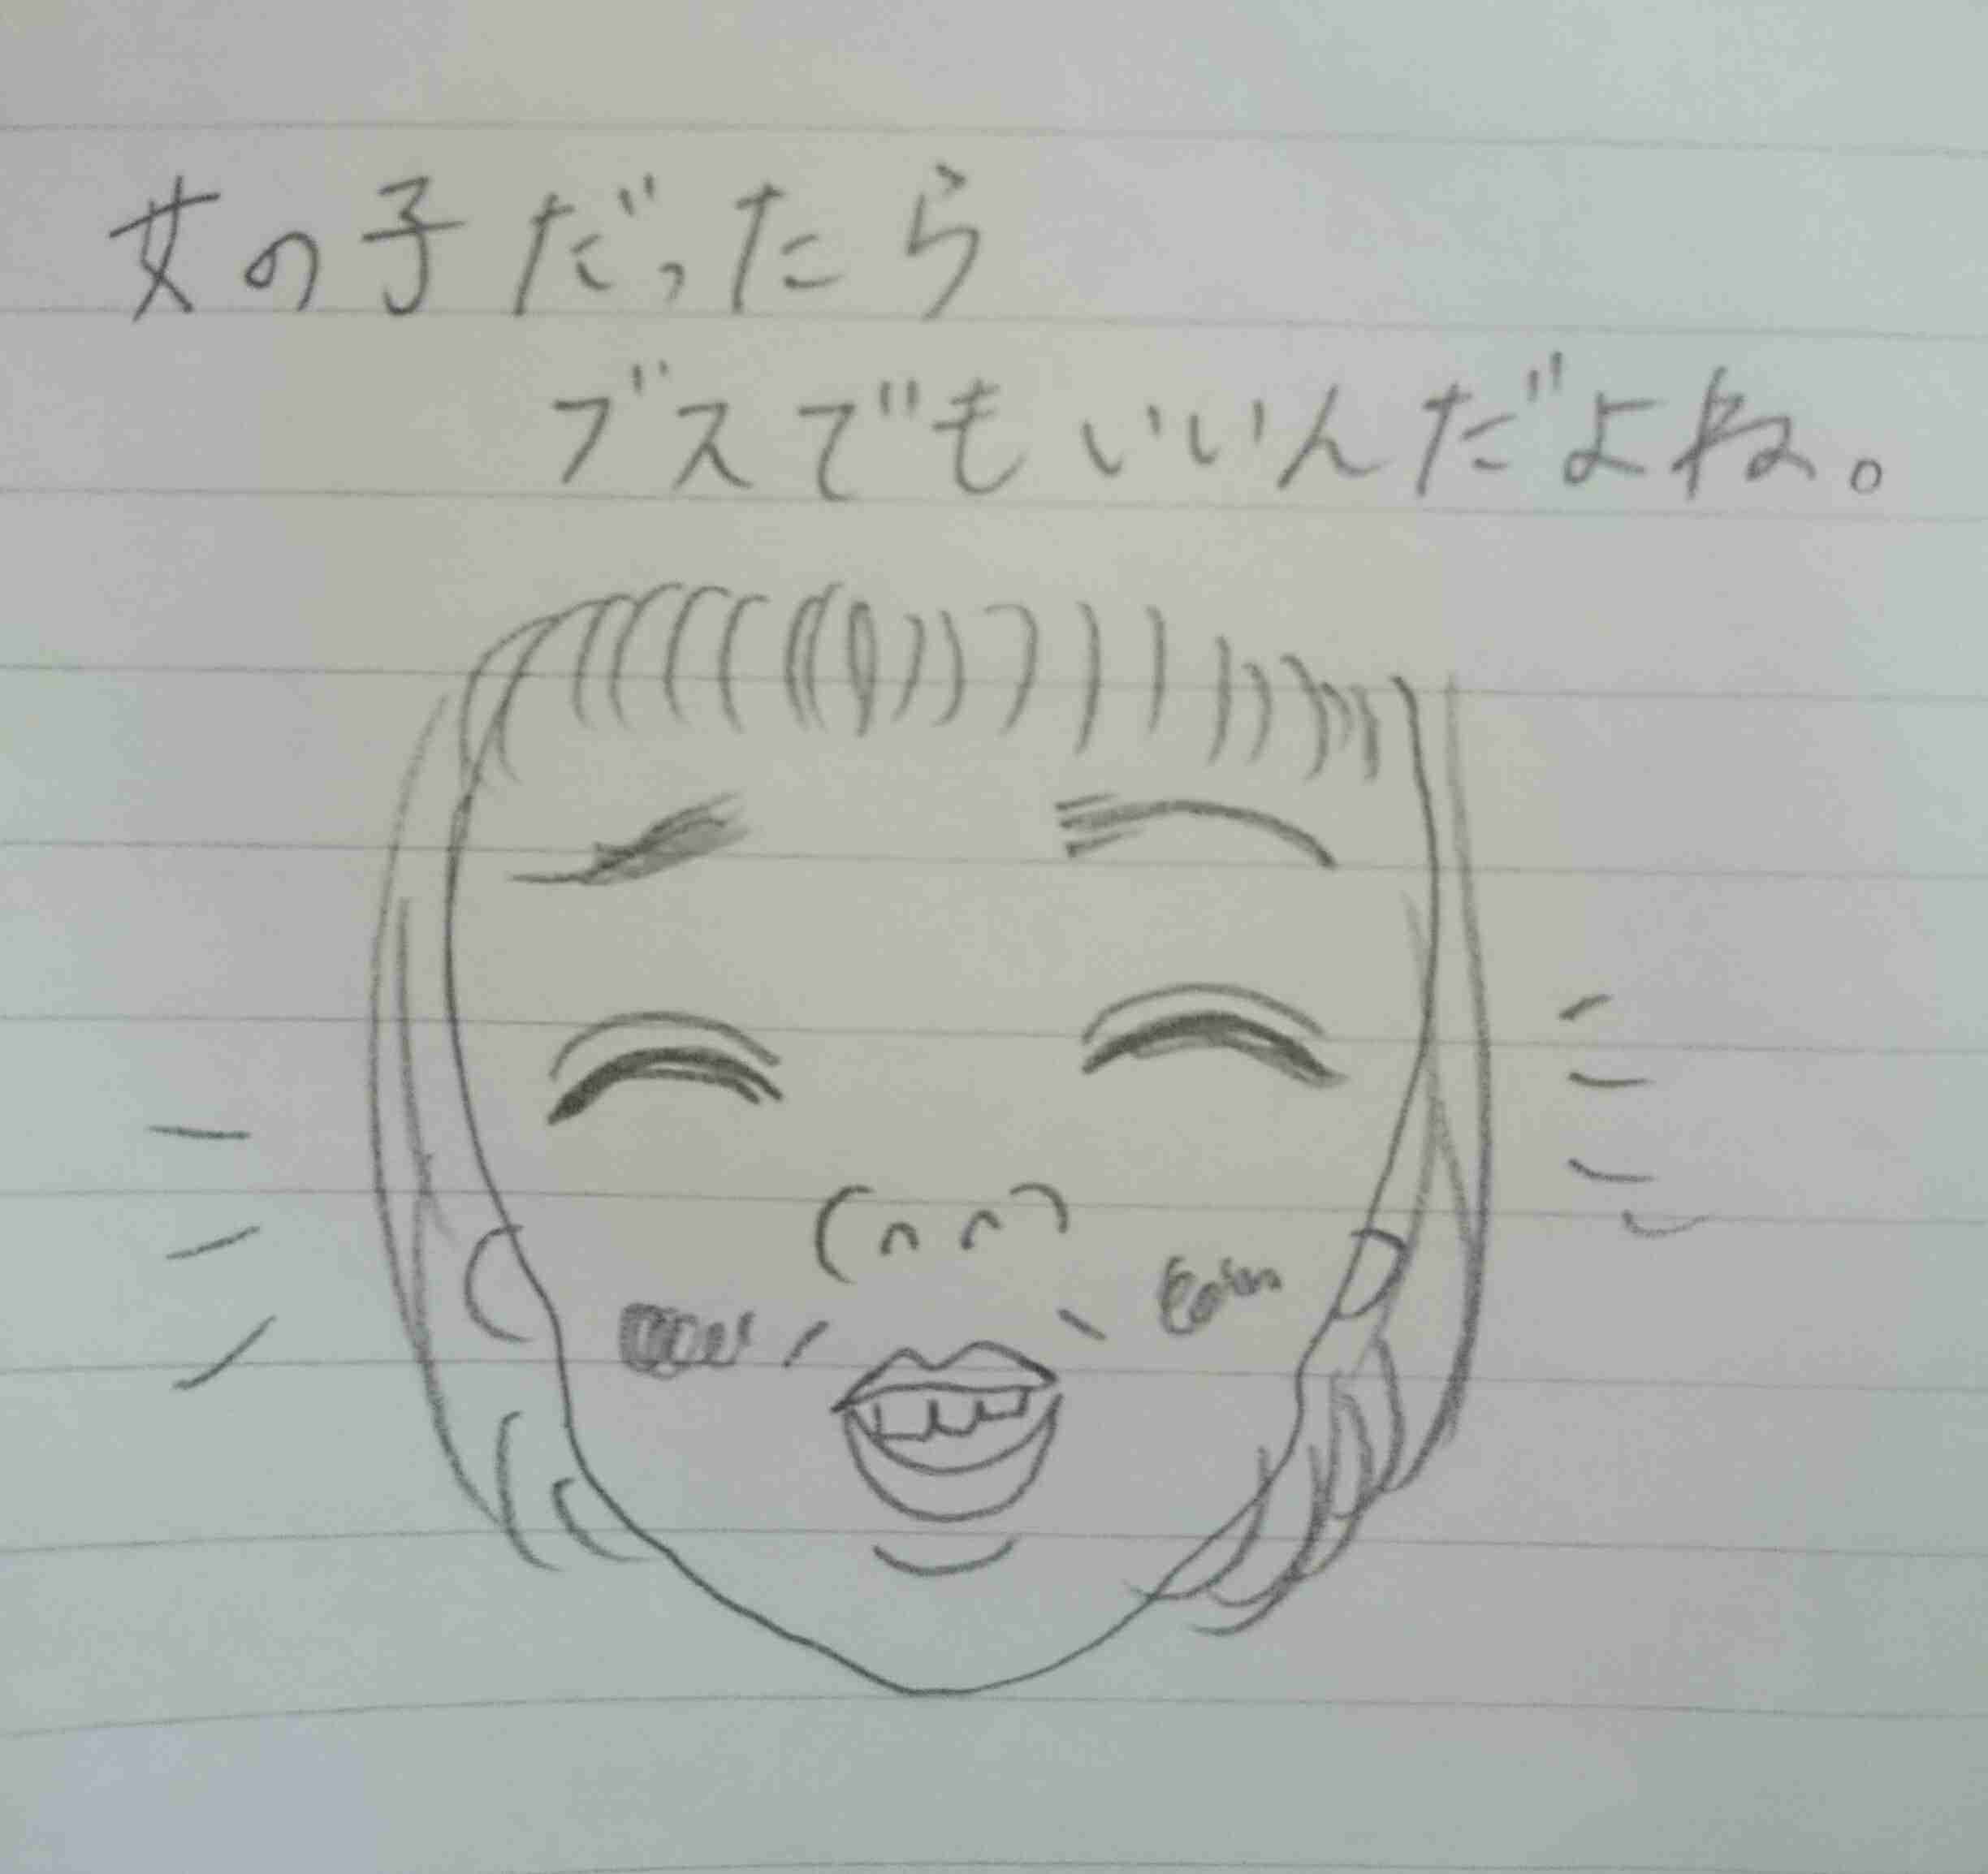 女の子だったら
ブスでもいいんだよね。